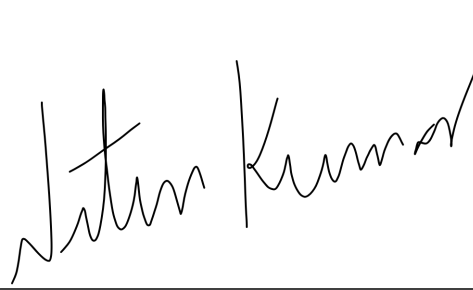 Nitin Kumar